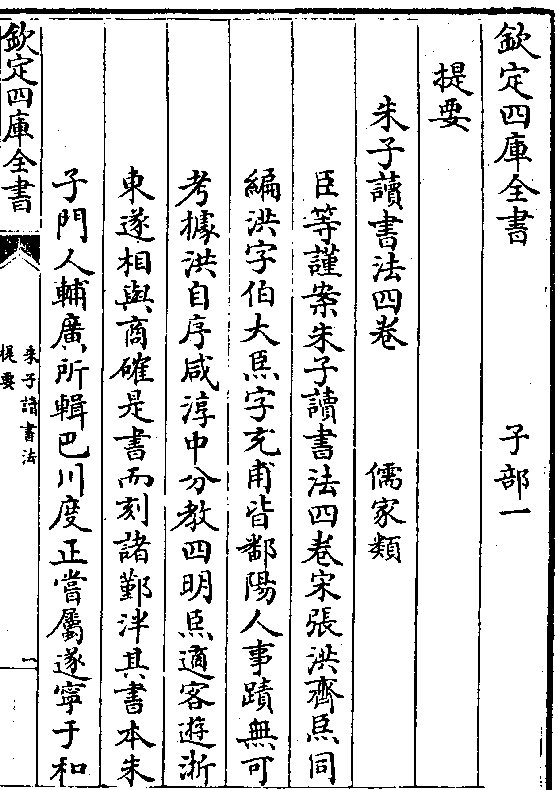 欽定四庫全書　子部一
提要
朱子讀書法四卷　儒家類
臣等謹案朱子讀書法四卷宋張洪齊㷩同
編洪字伯大㷩字充甫皆鄱陽人事蹟無可
考據洪自序咸淳中分教四明㷩適客遊浙
東遂相與商確是書而刻諸鄞泮其書本朱
子門人輔廣所輯巴川度正嘗屬遂寧于和
欽定四庫全書
朱子讀書法
提要
一